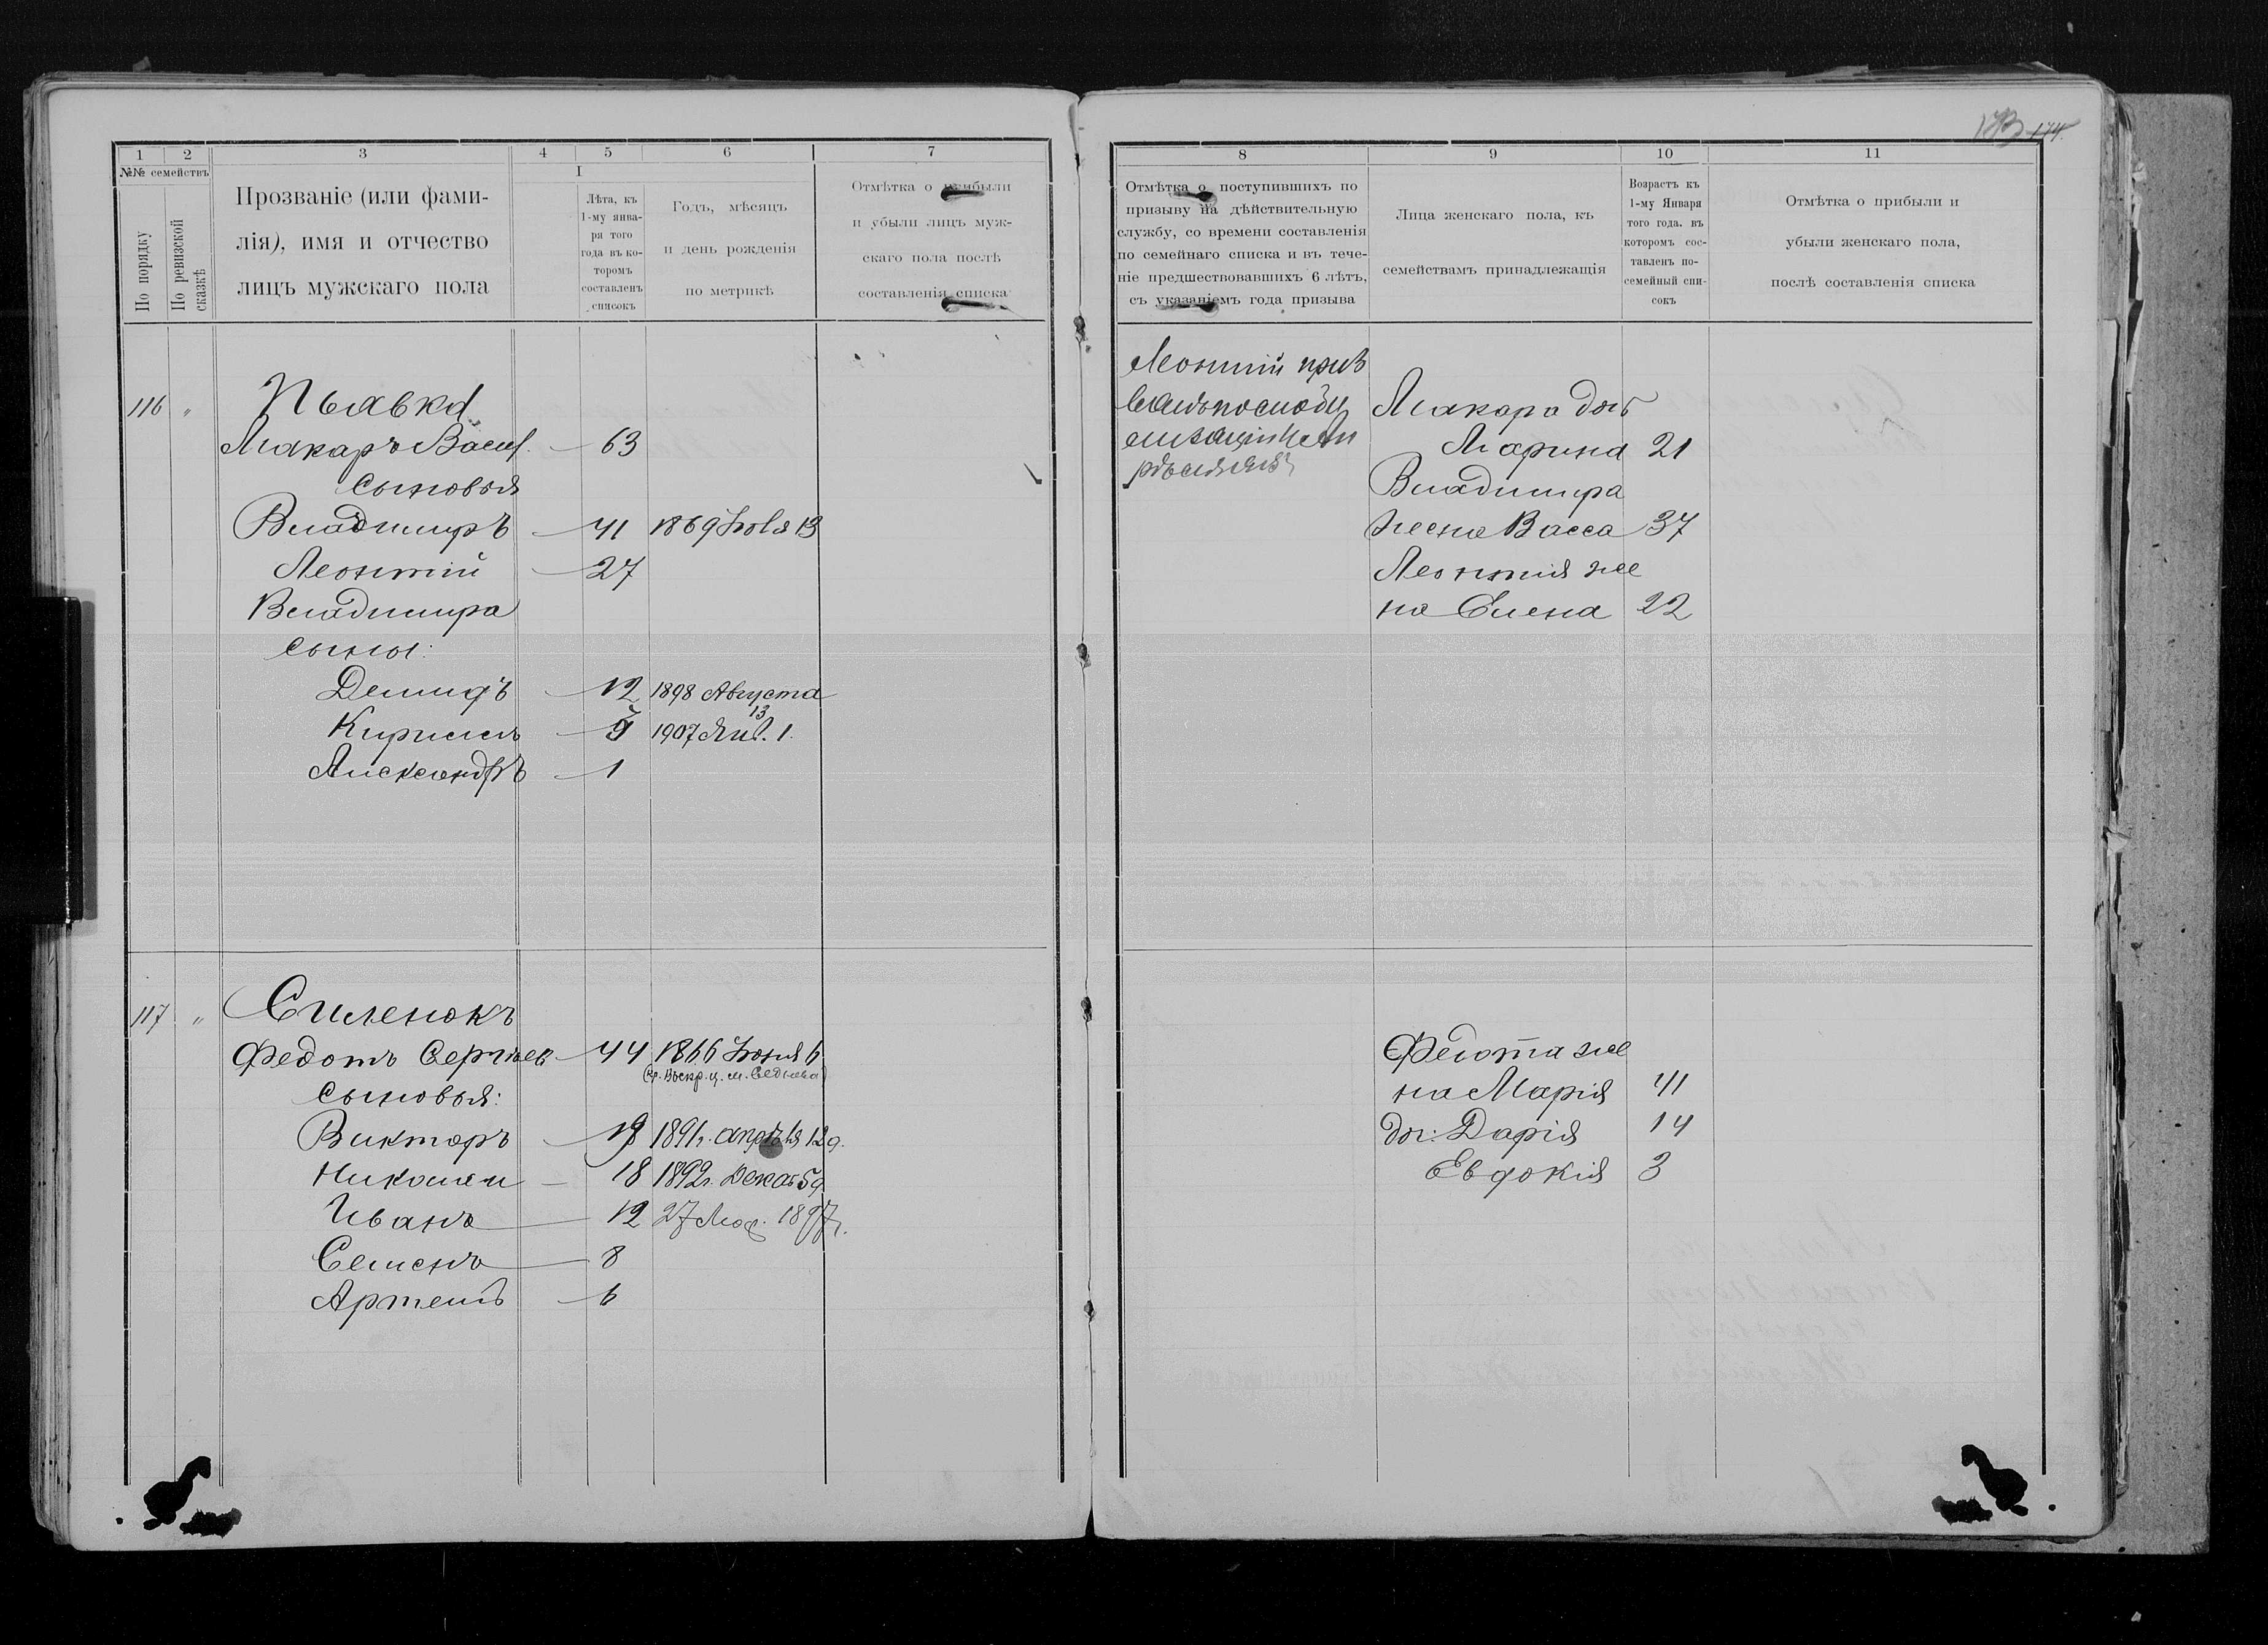 173 174.
1 2 3 4 5 6 7
№№ семействъ
По порядку
По ревизской сказкѣ
Прозваніе (или фами-
лія), имя и отчество
лицъ мужскаго пола
I
Лѣта, къ
1-му янва-
ря того
года въ ко-
торомъ
составленъ
списокъ
Годъ, мѣсяцъ
и день рожденія
по метрикѣ
Отмѣтка о прибыли
и убыли лицъ муж-
скаго пола послѣ
составленія списка
8 9 10 11
Отмѣтка о поступившихъ по
призыву на дѣйствительную
службу, со времени составленія
по семейнаго списка и въ тече-
ніе предшествовавшихъ 6 лѣтъ,
съ указаніемъ года призыва
Лица женскаго пола, къ
семействамъ принадлежащія
Возрастъ къ
1-му Января
того года. въ
которомъ сос-
тавленъ по-
семейный спи-
сокъ
Отмѣтка о прибыли и
убыли женскаго пола,
послѣ составленія списка
116 " Пьявка
Макаръ Васил. — 63
сыновья
Владимиръ — 41 1869 Іюля 13
Леонтій — 27
Владимира
сыны:
Демидъ — 12 1898 Августа
13
Кириллъ — 1907 Янв. 1.
Александръ — 1
Леонтій
Макара доч
Марина 21
Владимира
жена Васса 37
Леонтия же
на Елена 22
117 " Силенокъ
Федотъ Сергѣев — 44 1866 Іюня 6
(Кр. Воскр. ц. м. Седнева)
сыновья:
Викторъ — 19 1891г. апрѣля 12 д.
Николай — 18 1892г. Декаб 5 д.
Иванъ — 12 27 1897г.
Семенъ — 8
Артемъ — 6
Федота же
на Марія 41
доч: Дарія 14
Евдокія 3